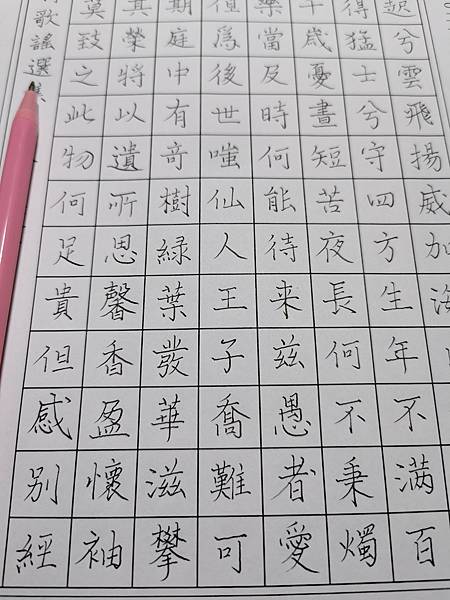 起兮雲飛揚威加海
得猛士兮守四方生年不滿百
千歲憂晝短苦夜長何不秉燭
樂當及時何能待来茲愚者愛
但為後世嗤仙人王子喬難可
期庭中有奇樹綠葉發華滋攀
其榮將以遺所思馨香盈懷袖
莫致之此物何足貴但感別經
歌謠選集